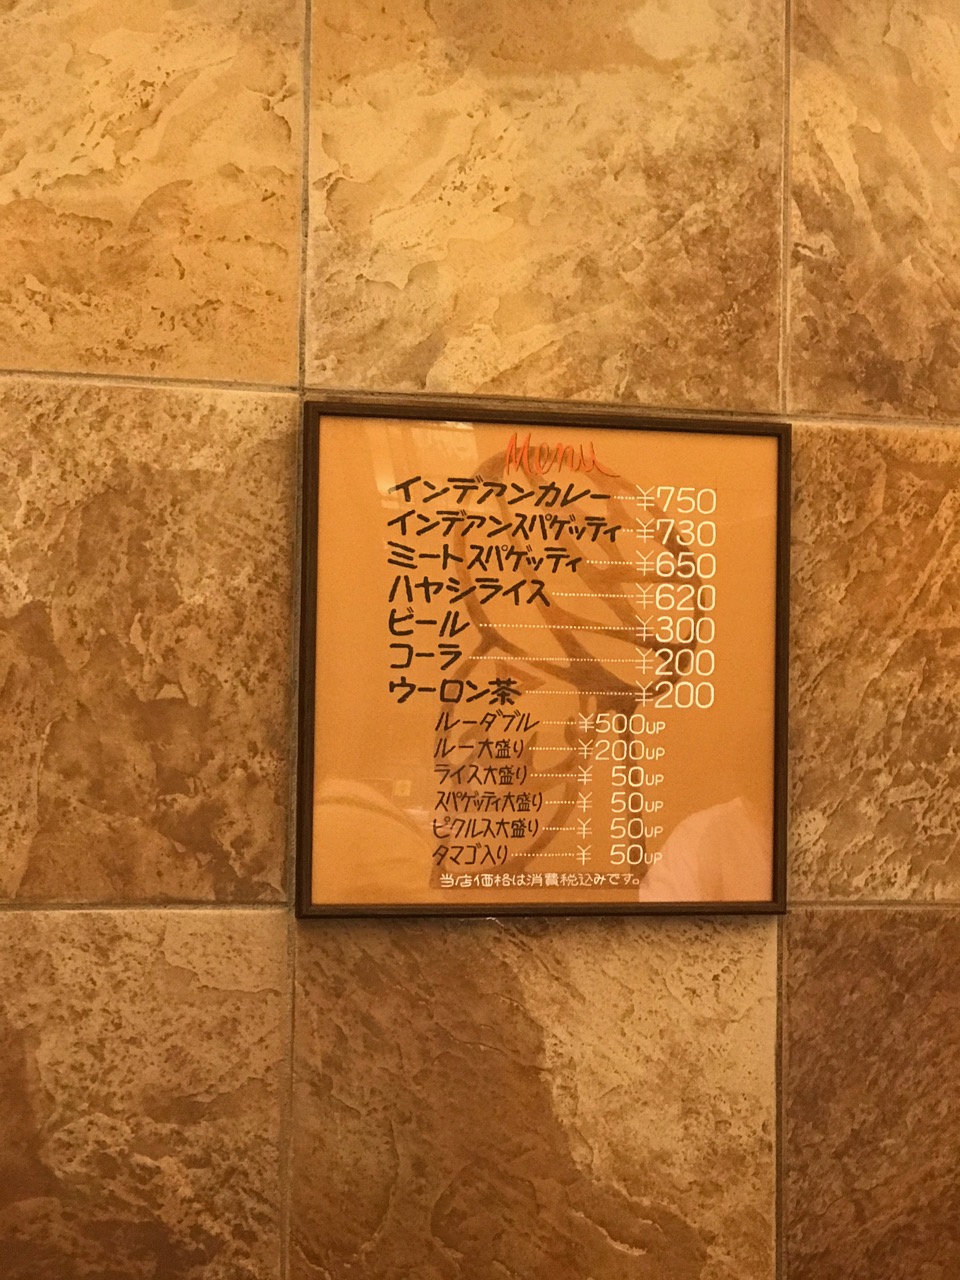 Menu
インデアンカレー……¥750
インデアンスパゲッティ…¥730
ミートスパゲッティ………¥650
ハヤシライス……………¥620
ビール…………………¥300
コーラ…………………¥200
ウーロン茶………………¥200
ルーダブル……¥500UP
ルー大盛り……¥200UP
ライス大盛り……¥ 50UP
スパゲッティ大盛り……¥ 50UP
ピクルス大盛り……¥ 50UP
タマゴ入り………¥ 50UP
当店価格は消費税込みです。